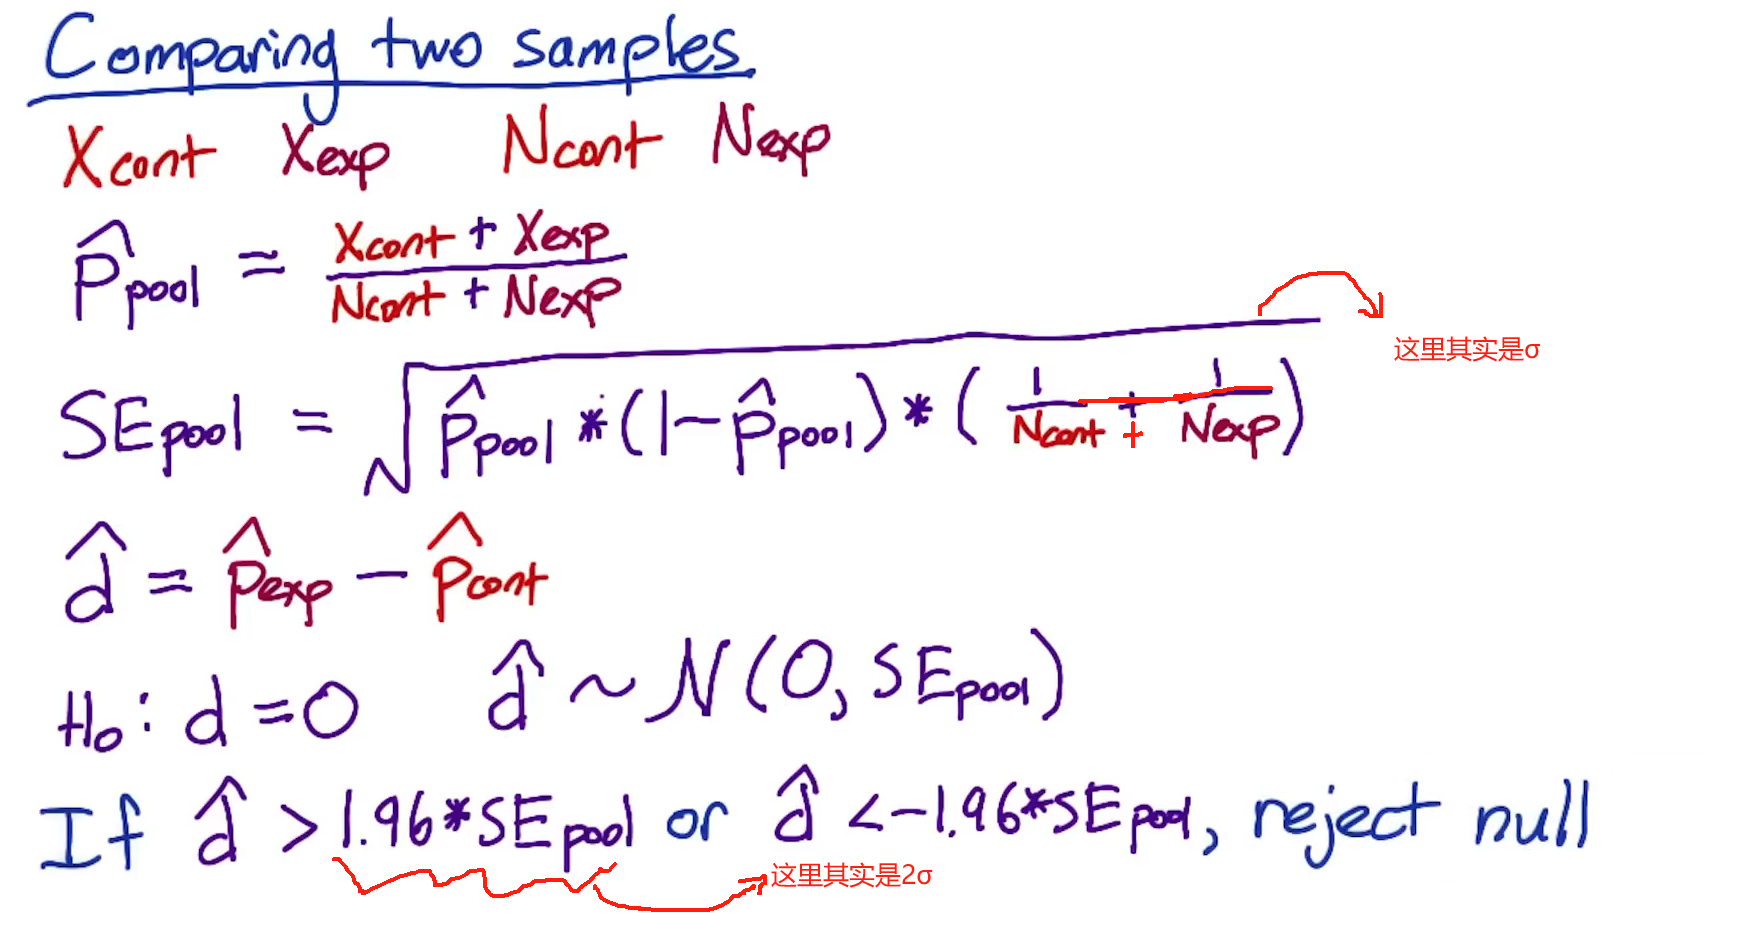 Comparing two samples
Xcont Xexp Ncont Nexp
p̂pool = (Xcont + Xexp) / (Ncont + Nexp)
SEpool = √(p̂pool * (1 - p̂pool) * (1/Ncont + 1/Nexp))
+
这里其实是σ
d̂ = p̂exp - p̂cont
H₀: d = 0 d̂ ~ N(0, SEpool)
If d̂ > 1.96*SEpool or d̂ < -1.96*SEpool, reject null
这里其实是2σ